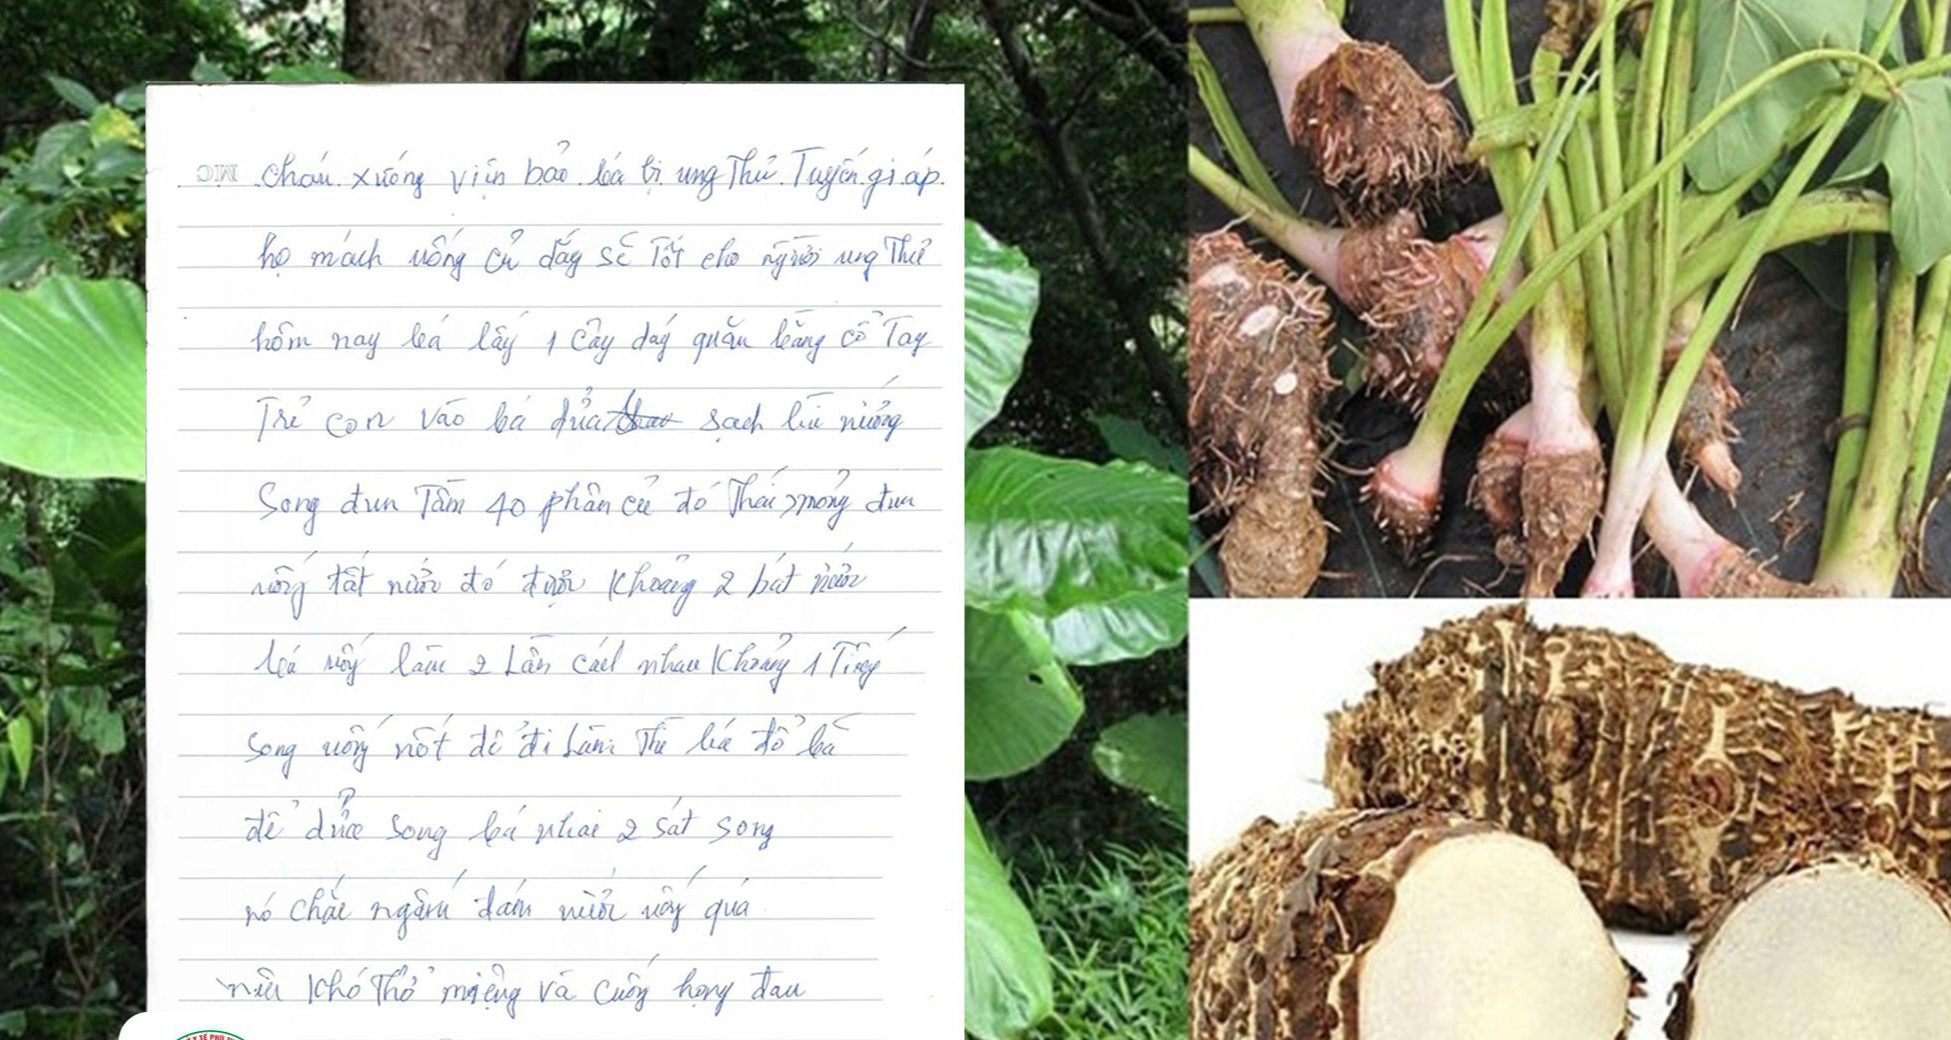 cháu xuống viện bảo bá bị ung Thư Tuyến giáp
họ mách uống củ dáy sẽ Tốt cho người ung Thư
hôm nay bá lấy 1 cây dáy quăn bằng cổ Tay
Trẻ con vào bá rửa sạch lùi nướng
Song đun Tầm 40 phần củ đó Thái mỏng đun
uống tất nước đó được Khoảng 2 bát nước
bá uống làm 2 Lần cách nhau Khoảng 1 Tiếng
Song uống nốt để đi Làm Thì bá đổ bã
để Song bá nhai 2 sát Song
nó chắc ngấm dám nước uống quá
nên Khó Thở miệng và cuống họng đau